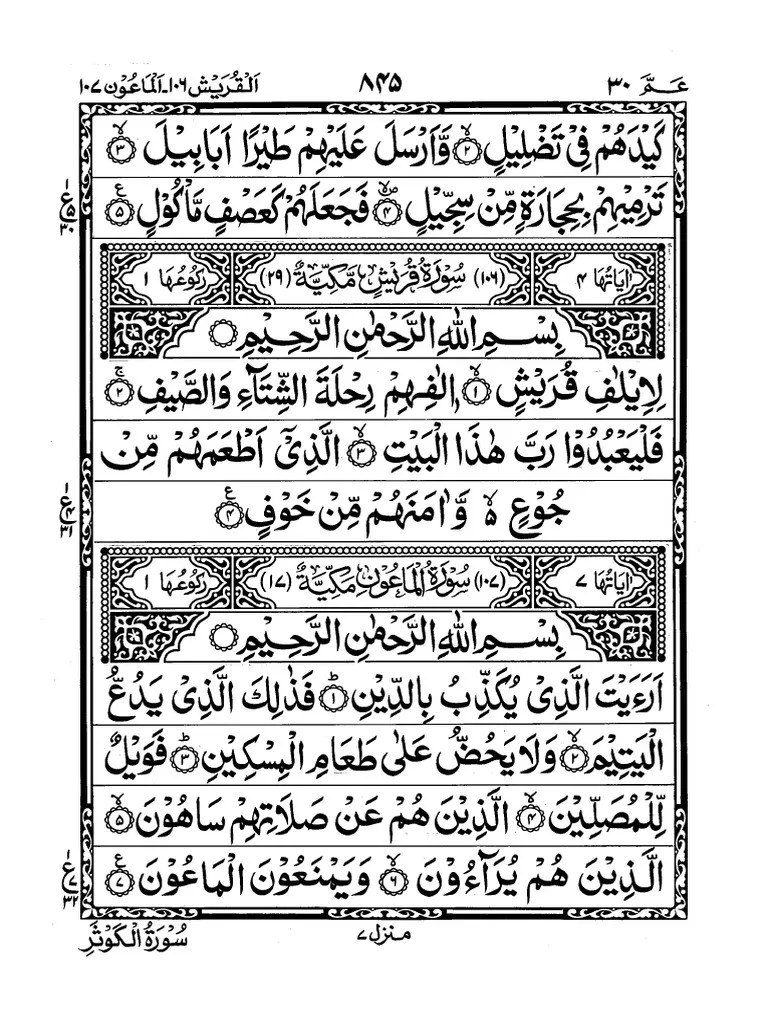 عَـمَّ ٣٠
٨۴۵
اَلْقُرَيْش ١٠٦-اَلْمَاعُوْن ١٠٧
كَيْدَهُمْ فِيْ تَضْلِيْلٍ ۙ﴿۲﴾ وَّاَرْسَلَ عَلَيْهِمْ طَيْرًا اَبَابِيْلَ ۙ﴿۳﴾
تَرْمِيْهِمْ بِحِجَارَةٍ مِّنْ سِجِّيْلٍ ﴿۴﴾ فَجَعَلَهُمْ كَعَصْفٍ مَّاْكُوْلٍ ﴿۵﴾
ع
۵
٣٠
اٰيَاتُهَا ۴
(١٠٦) سُوْرَةُ قُرَيْشٍ مَّكِّيَّةٌ (٢٩)
رُكُوْعُهَا ١
بِسْمِ اللّٰهِ الرَّحْمٰنِ الرَّحِيْمِ
لِاِيْلٰفِ قُرَيْشٍ ۙ﴿١﴾ اٖلٰفِهِمْ رِحْلَةَ الشِّتَآءِ وَالصَّيْفِ ۚ﴿۲﴾
فَلْيَعْبُدُوْا رَبَّ هٰذَا الْبَيْتِ ۙ﴿۳﴾ الَّذِيْٓ اَطْعَمَهُمْ مِّنْ
جُوْعٍ ۵ۙ وَّاٰمَنَهُمْ مِّنْ خَوْفٍ ﴿۴﴾
ع
۴
٣١
اٰيَاتُهَا ٧
(١٠٧) سُوْرَةُ الْمَاعُوْنِ مَكِّيَّةٌ (١٧)
رُكُوْعُهَا ١
بِسْمِ اللّٰهِ الرَّحْمٰنِ الرَّحِيْمِ
اَرَءَيْتَ الَّذِيْ يُكَذِّبُ بِالدِّيْنِ ؕ﴿١﴾ فَذٰلِكَ الَّذِيْ يَدُعُّ
الْيَتِيْمَ ۙ﴿۲﴾ وَلَا يَحُضُّ عَلٰى طَعَامِ الْمِسْكِيْنِ ؕ﴿۳﴾ فَوَيْلٌ
لِّلْمُصَلِّيْنَ ۙ﴿۴﴾ الَّذِيْنَ هُمْ عَنْ صَلَاتِهِمْ سَاهُوْنَ ۙ﴿۵﴾
الَّذِيْنَ هُمْ يُرَآءُوْنَ ۙ﴿۶﴾ وَيَمْنَعُوْنَ الْمَاعُوْنَ ﴿٧﴾
ع
٧
٣٢
منزل ٧
سُوْرَةُ الْكَوْثَرِ